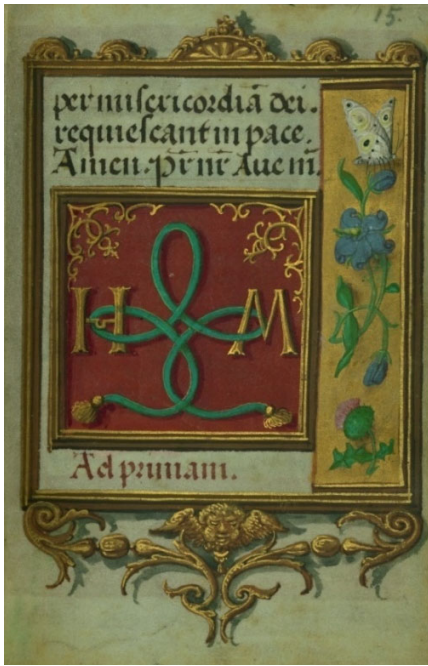 15.
per misericordiā dei.
requiescant in pace.
Amen. Pr̄ nr̄ Aue m̄.
H M
Ad primam.